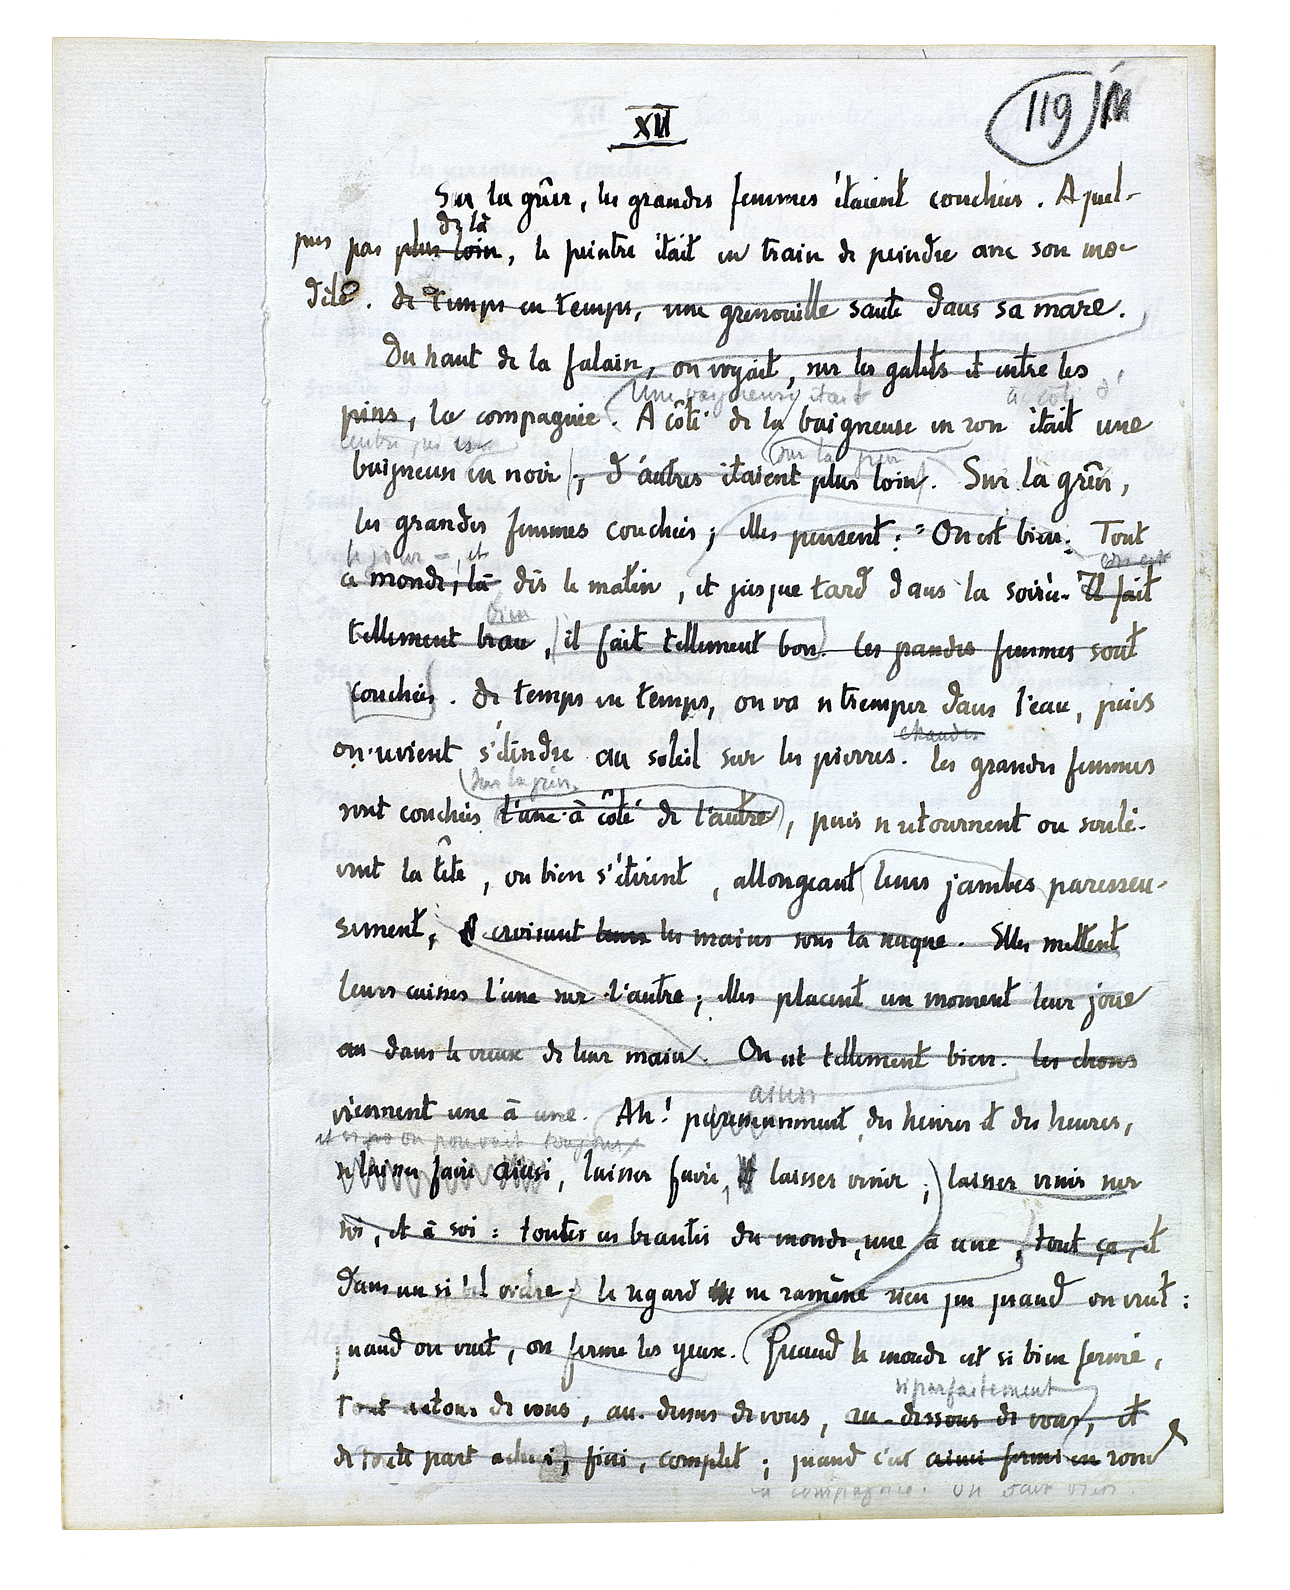 119
XII
Sur la grève, les grandes femmes étaient couchées. A quel-
de là
ques pas plus loin, le peintre était en train de peindre avec son mo-
dèle. De temps en temps, une grenouille saute dans sa mare.
Du haut de la falaise, on voyait, sur les galets et entre les
Une baigneuse était à côté d'
pins, la compagnie. A côté de la baigneuse en rose était une
baigneuse en noir ; d'autres étaient plus loin. Sur la grève,
sur la grève
les grandes femmes couchées ; elles pensent : "On est bien. Tout
le jour – et
ce monde, là, dès le matin, et jusque tard dans la soirée. Il fait
bien
tellement beau, il fait tellement bon. Les grandes femmes sont
couchées. De temps en temps, on va se tremper dans l'eau, puis
chaudes
on revient s'étendre au soleil sur les pierres. Les grandes femmes
sur la grève,
sont couchées l'une à côté de l'autre, puis se retournent ou soulè-
vent la tête, ou bien s'étirent, allongeant leurs jambes paresseu-
sement, croisant leurs les mains sous la nuque. Elles mettent
leurs cuisses l'une sur l'autre ; elles placent un moment leur joue
au dans le creux de leur main. On est tellement bien. Les choses
viennent une à une. Ah! paresseusement, des heures et des heures,
et si on pouvait toujours
se laisser faire ainsi, laisser faire, laisser venir ; laisser venir sur
soi, et à soi : toutes ces beautés du monde, une à une, tout ça, et
dans un si bel ordre ; le regard ne ramène rien que quand on veut :
quand on veut, on ferme les yeux. Quand le monde est si bien fermé,
si parfaitement
tout autour de vous, au-dessus de vous, au-dessous de vous, et
de toute part achevé, fini, complet ; quand c'est ainsi fermé en rond
la compagnie. On est bien.